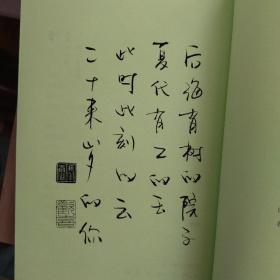 后海有树的院子
夏代有工的玉
此时此刻的云
二十来岁的你